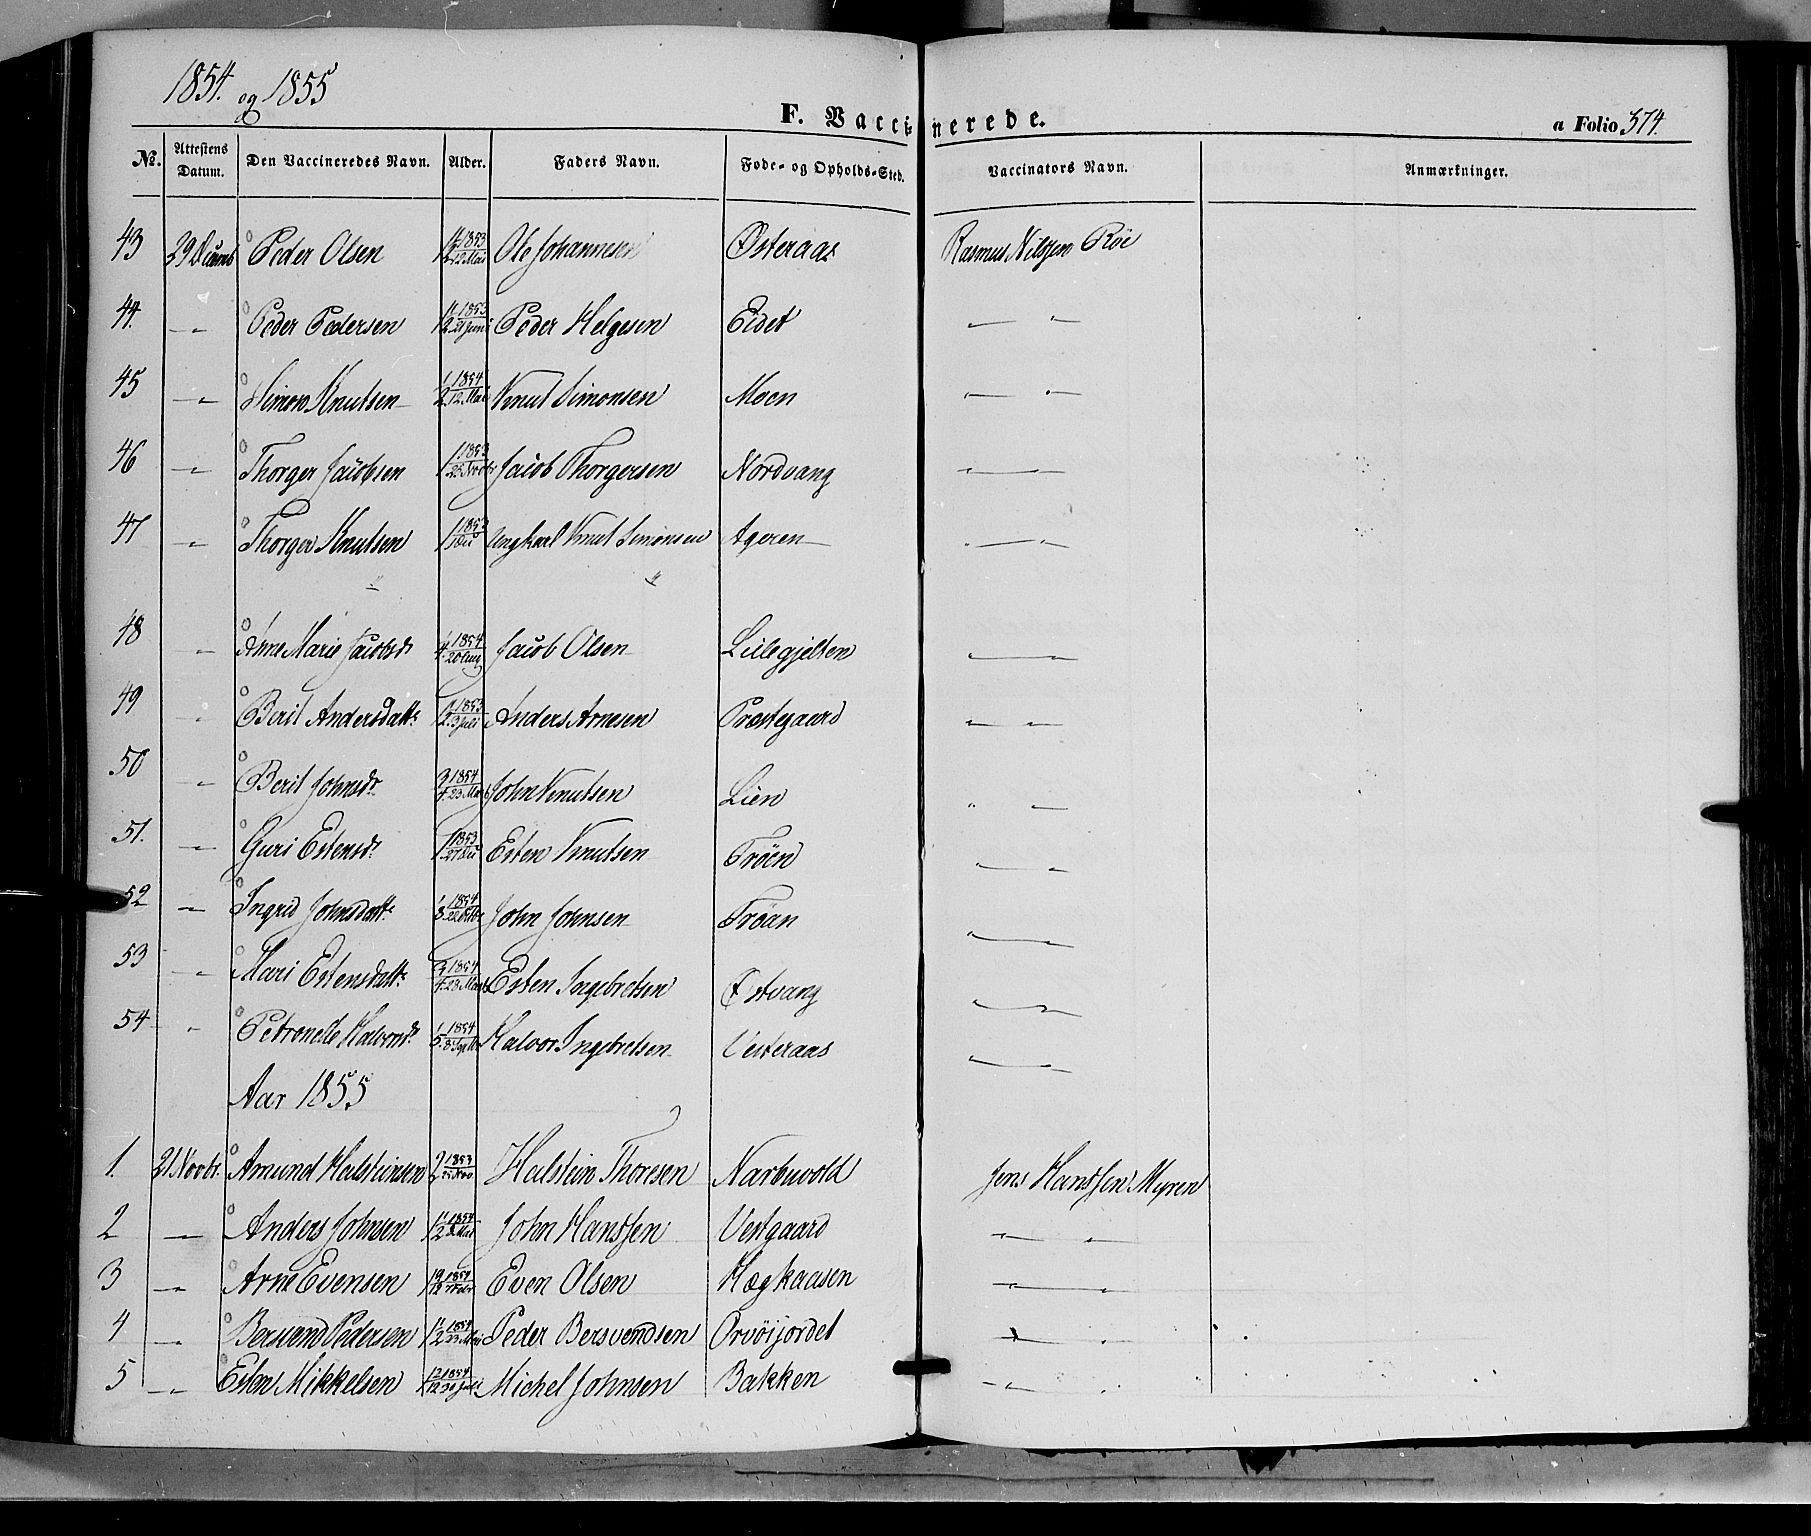 1854. og 1855
F. Vaccinerede.
a Folio 374.
No. Attestens Datum. Den Vaccineredes Navn. Alder. Faders Navn. Føde- og Opholds-Sted. Vaccinators Navn. Anmærkninger.
43 29 Decemb Peder Olsen 1853 12 Mai Ole Johannesen Østeraas Rasmus Nilssen Röe
44. -"- Peder Pedersen 1853 21 Juni Peder Helgesen Eidet -"-
45 -"- Simon Knutsen 1/2 1854 12 Mai Knut Simonsen Moen -"-
46 -"- Thorger Jacobsen 1 1853 25 Novbr Jacob Thorgersen Nordvang -"-
47 " Thorger Knutsen 1 1853 Dec Ungkarl Knut Simonsen Ageren -"-
48 -"- Ane Marie Jacobsd. 1/4 1854 20 Aug Jacob Olsen Lillegjelten -"-
49 -"- Berit Andersdattr 1853 3 Juli Anders Arnesen Præstegaard -"-
50 -"- Berit Johnsdr 3/4 1854 23 Marts John Knutsen Lien -"-
51. -"- Guri Estensdr 1 1853 27 Dec Esten Knutsen Tröen -"-
52 -"- Ingrid Johnsdattr 1854 22 Octbr John Johnsen Tröan -"-
53 -"- Mari Estensdattr 3/4 1854 23 Marts Esten Ingebretsen Østvang -"-
54 " Petronelle Halvorsdr 1854 8 Septbr Halvor Ingebretsen Vesteraas -"-
Aar 1855
1. 21 Novbr. Amund Halsteinsen 2 1853 25 Nov Halstein Thoresen Narbuvold Jens Hanssen Myren
2 -"- Anders Johnsen 1854 Mai John Hanssen Vestgaard -"-
3 -"- Arne Evensen 1854 Even Olsen Hægkaasen -"-
4 -"- Bersvend Pedersen 1854 23 Mai Peder Bersvendsen Orvöijordet -"-
5 -"- Esten Mikkelsen 1854 30 Juli Michel Johnsen Bakken -"-